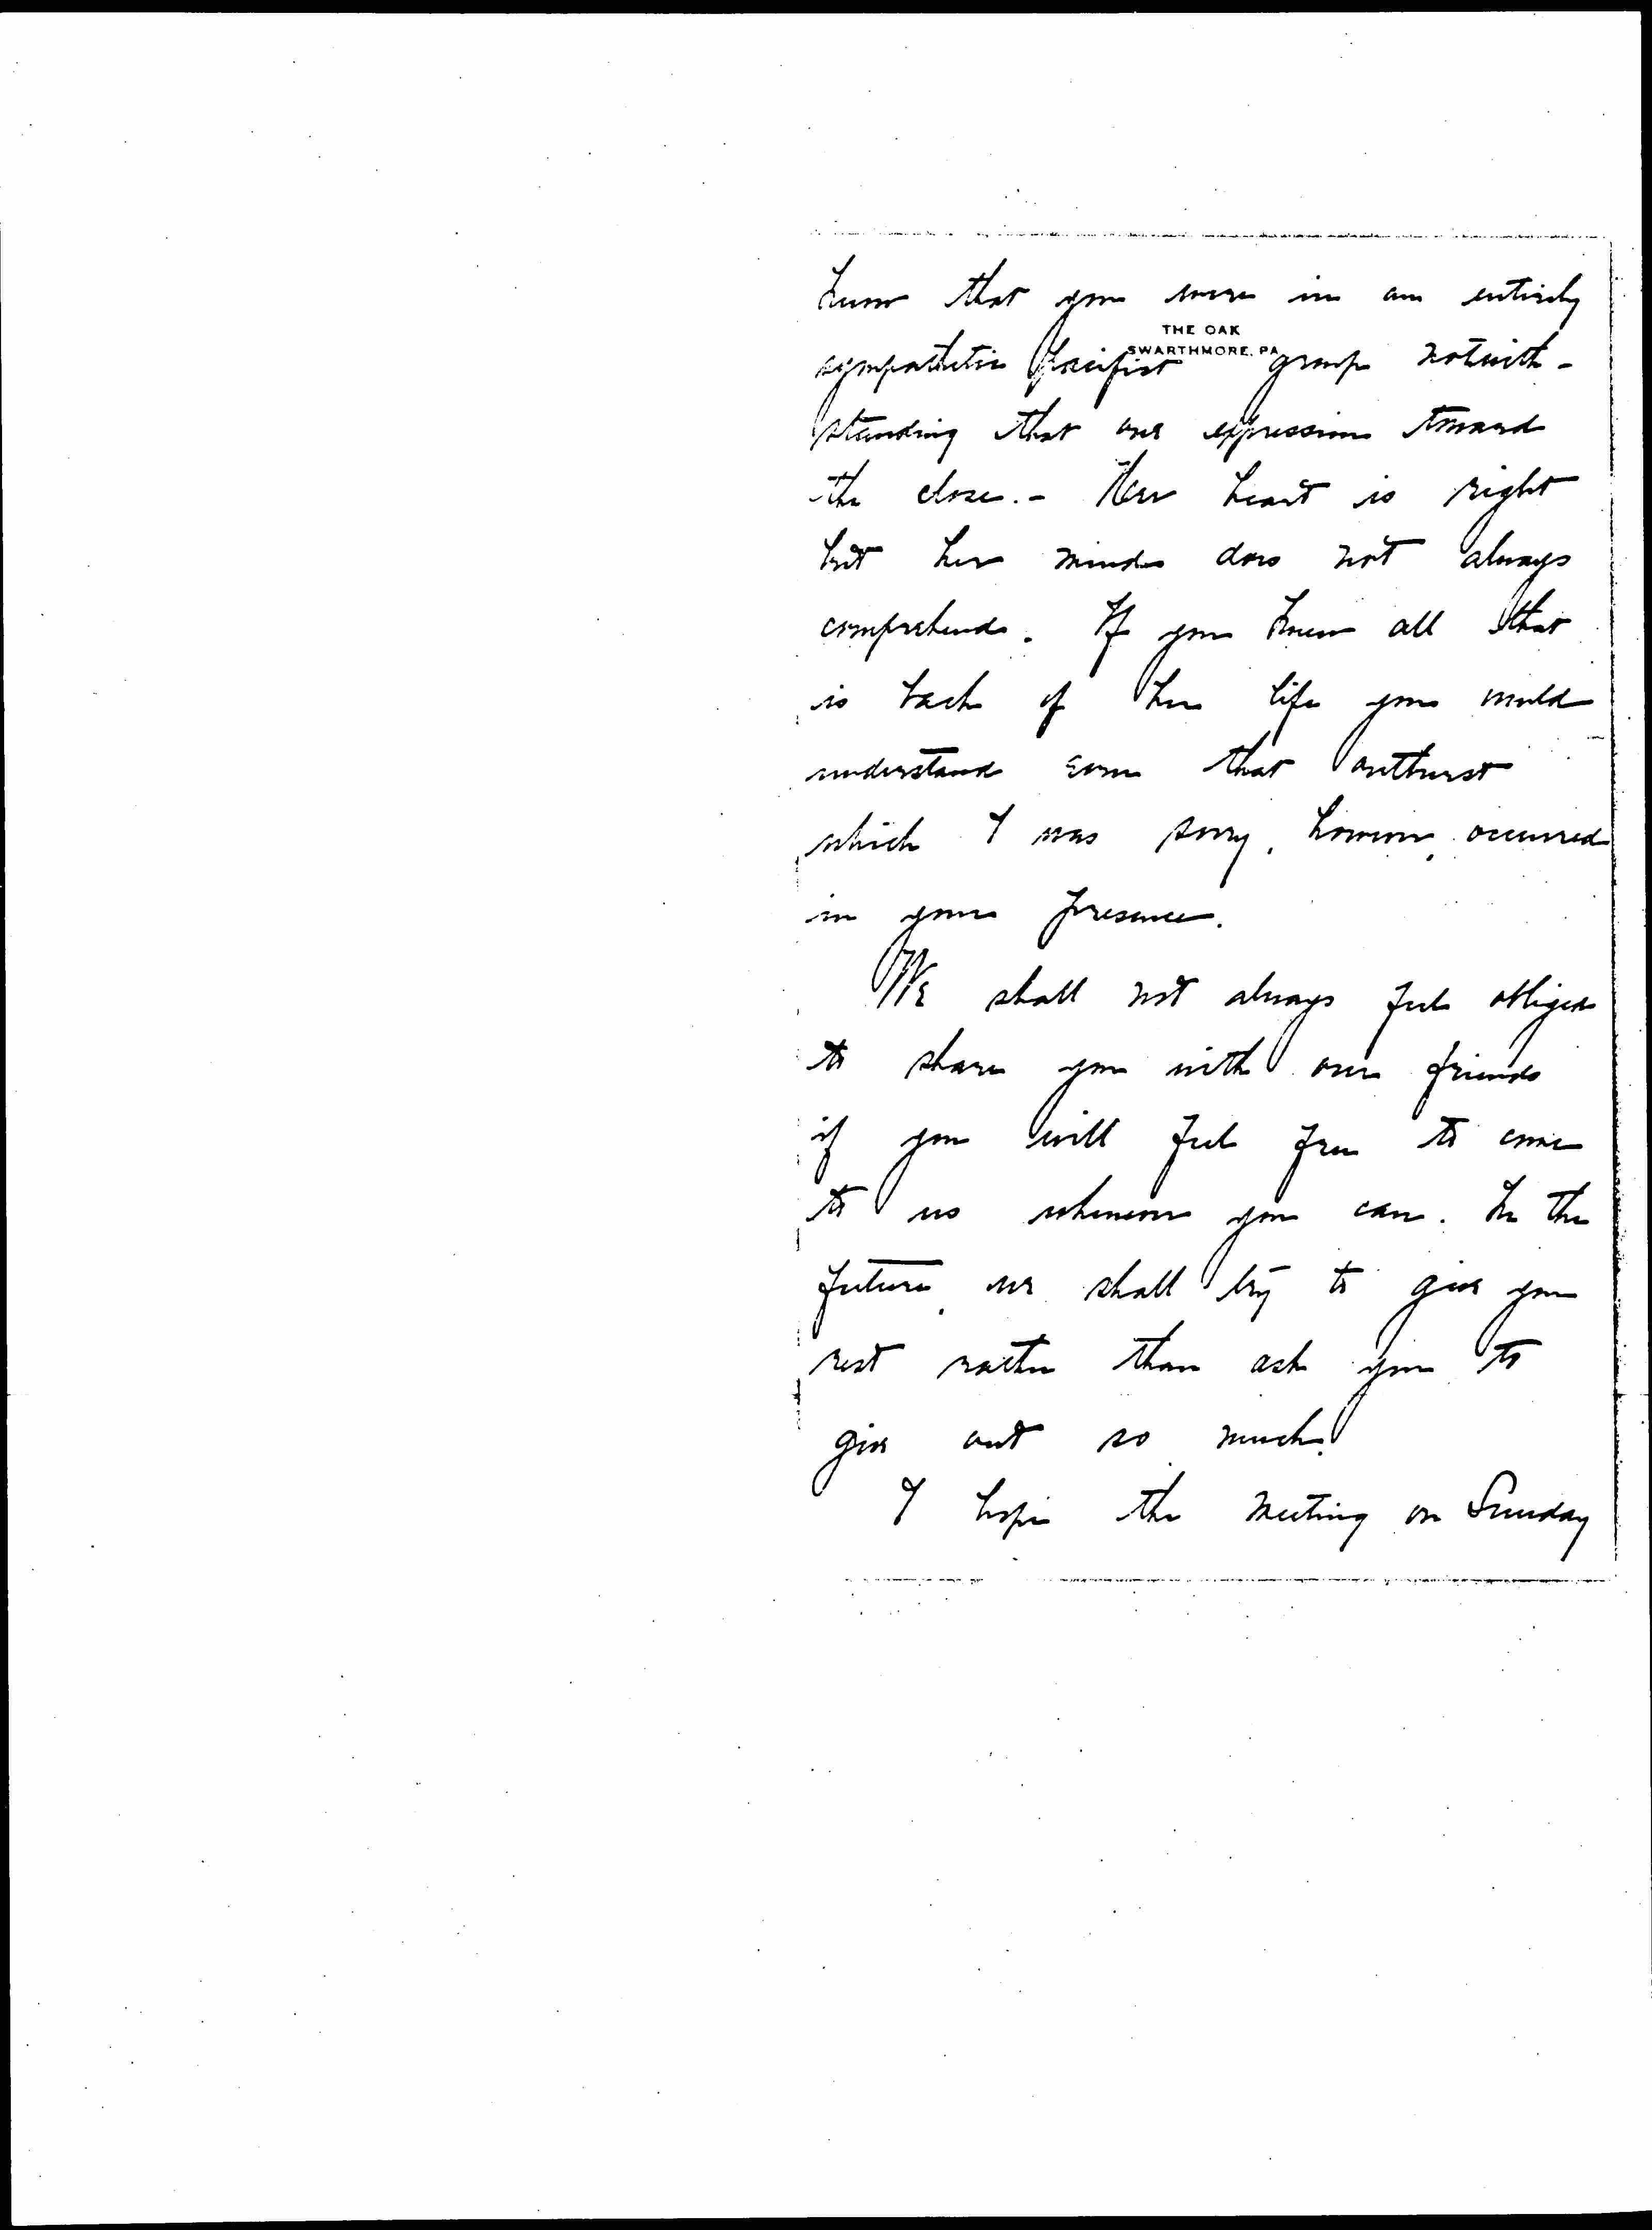 know that you were in an entirely
THE OAK
SWARTHMORE, PA
sympathetic pacifist group notwith-
standing that one expression toward
the close. - Her heart is right
but her mind does not always
comprehend. If you knew all that
is back of her life you would
understand even that outburst
which I was sorry, however, occurred
in your presence.
We shall not always feel obliged
to share you with our friends
if you will feel free to come
to us whenever you can. In the
future, we shall try to give you
rest rather than ask you to
give out so much.
I hope the meeting on Sunday